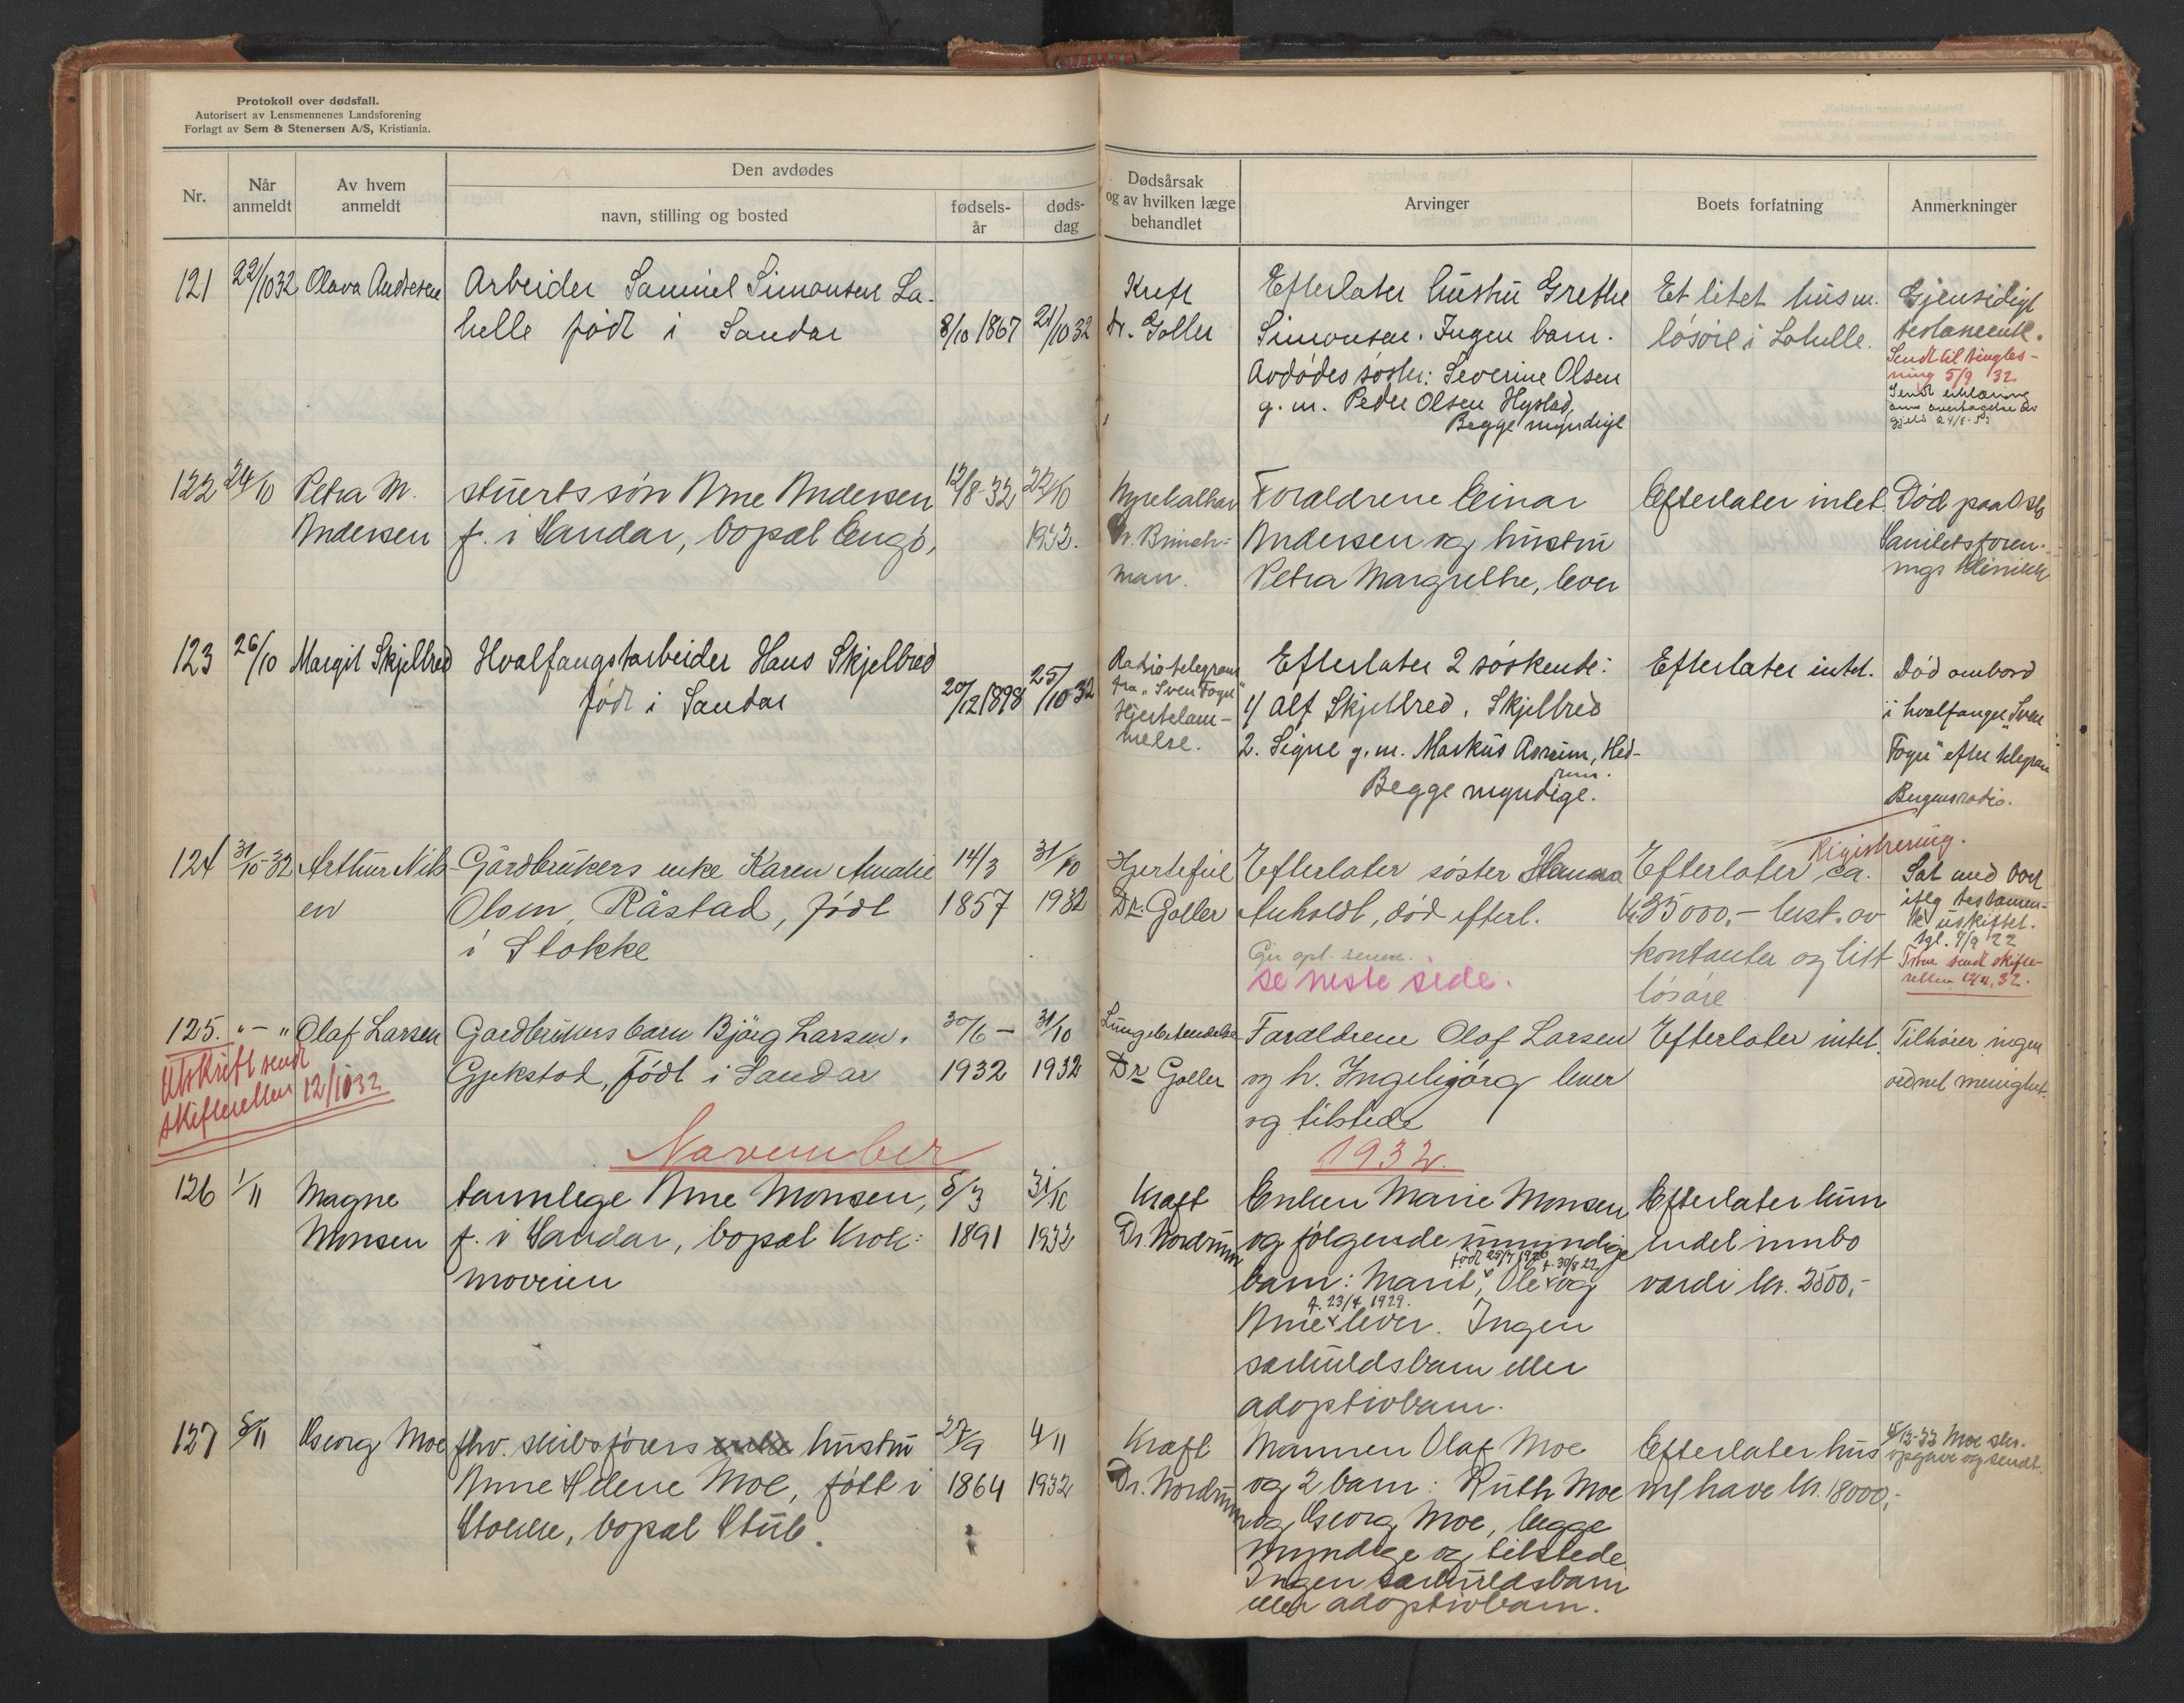 Protokoll over dødsfall.
Autorisert av Lensmennenes Landsforening
Forlagt av Sem & Stenersen A/S, Kristiania.
Nr.
Når anmeldt
Av hvem anmeldt
Den avdødes
navn, stilling og bosted
fødsels-år
døds-dag
Dødsårsak og av hvilken læge behandlet
Arvinger
Boets forfatning
Anmerkninger
121 22/10 32 Olava Andresen
Arbeider Samuel Simonsen La-
helle født i Sandar
8/10 1867 21/10 32
Kreft
dr. Goller
Efterlater hustru Grethe
Simonsen. Ingen barn.
Avdødes søster: Severine Olsen
g. m. Peder Olsen Hystad,
Begge myndige
Et litet hus m.
løsøre i Lahelle.
Gjensidigt
testamente.
Sendt til tingles-
ning 5/9 32
Sendt erklæring
om overtagelse av
gjeld
122 24/10 Petra M.
Andersen
stuerts søn Arne Andersen
f. i Sandar, bopæl Engø,
12/8-32 22/10
1932.
Nyrekathar
Dr. Brinch-
man.
Forældrene Einar
Andersen og hustru
Petra Margrethe, lever
Efterlater intet
Død paa Oslo
Sanitetsforen-
ings klinikk
123 26/10 Margit Skjelbred
Hvalfangstarbeider Hans Skjelbred
født i Sandar
20/12 1898 25/10 32
Radiotelegram
fra "Sven Foyn"
Hjertelam-
melse.
Efterlater 2 søskende:
1/ Alf Skjelbred, Skjelbred
2. Signe g. m. Markus Aasrum, Hed-
rum.
Begge myndige.
Efterlater intet.
Død ombord
i hvalfanger "Sven
Foyn" efter telegram
Bergensradio.
124 31/10-32 Arthur Nils-
en
Gårdbrukers enke Karen Amalie
Olsen, Råstad, født
i Stokke
14/3
1857
31/10
1932
Hjertefeil
Dr. Goller
Efterlater søster Hanna
Anholdt, død efterl.
Gir opl. senere.
se neste side.
Efterlater ca.
kr 35000,- best. av
kontanter og litt
løsøre
Registrering.
Sat med boet
iflg testamen-
te uskiftet.
tgl. 7/9 22
sendt skifte-
retten 12/11, 32.
125. "-" Olaf Larsen
Gardbrukers barn Bjørg Larsen.
Gjekstad, født i Sandar
30/6-
1932
31/10
1932
Lungebetendelse
Dr. Goller
Forældrene Olaf Larsen
og h. Ingebjørg lever
og tilstede
Efterlater intet.
Tilhører ingen
ordnet menighet.
Utskrift sendt
skifteretten 12/11 32
November
1932.
126 1/11 Magne
Monsen
tannlege Arne Monsen,
f. i Sandar, bopæl Krok-
moveien
5/3
1891
31/10
1932
Kræft
Dr. Nordrum
Enken Marie Monsen
og følgende umyndige
født 25/7 1920 f. 30/8 22
barn: Marit, Ole og
f. 23/4 1929.
Arne lever. Ingen
særkuldsbarn eller
adoptivbarn.
Efterlater kun
endel innbo
værdi kr. 2500,-
127 5/11 Georg Moe
fhv. skibsførers enke hustru
Anne Helene Moe, født i
Stokke, bopæl Stub.
27/9
1864
4/11
1932
Kræft
Dr. Nordrum
Mannen Olaf Moe
og 2 barn: Ruth Moe
og Georg Moe, begge
myndige og tilstede
Ingen særkuldsbarn
eller adoptivbarn.
Efterlater hus
m/ have kr. 18000,-
15/12-33 Moe skr.
opgave og sendt.